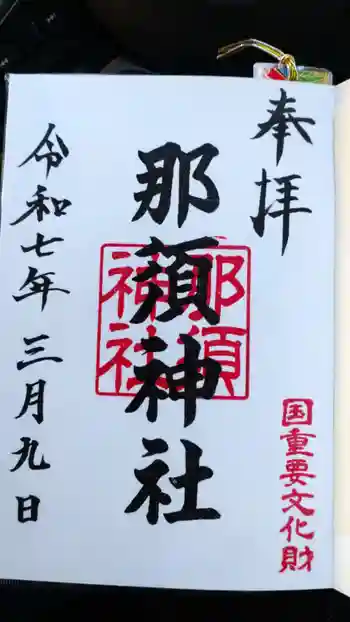 奉拝
那須神社
那須
神社
国重要文化財
令和七年三月九日